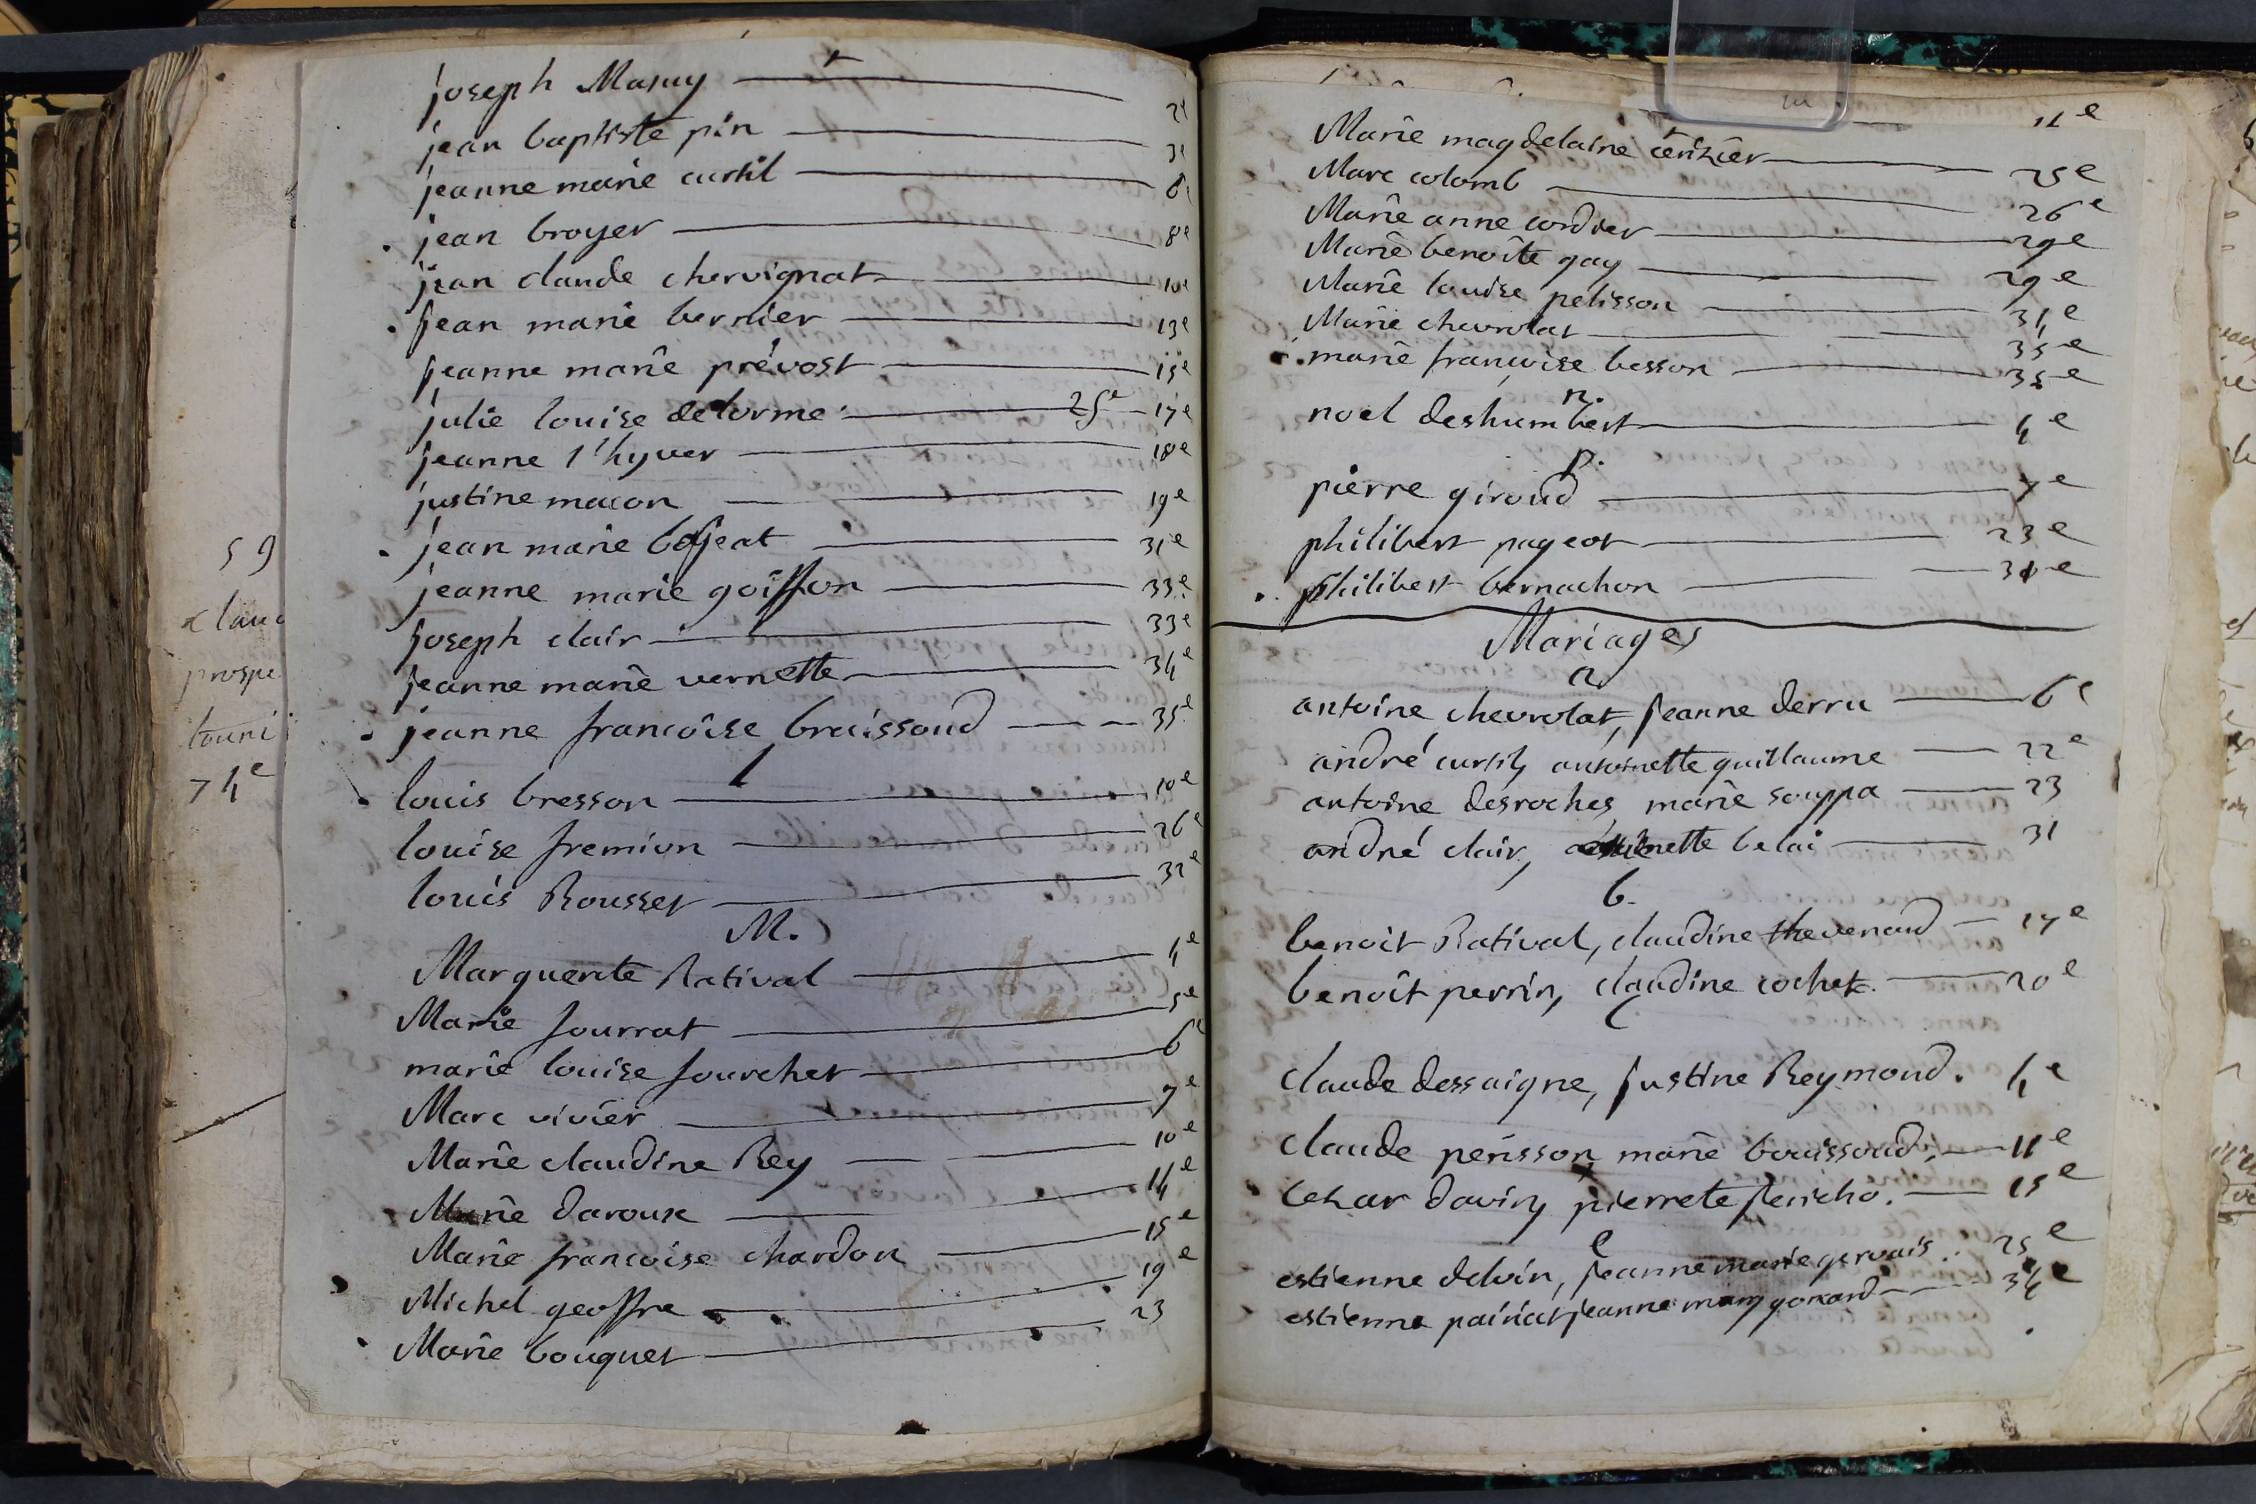 joseph Masuy
jean baptiste pin 3
jeanne marie curtil 6
jean broyer 8e
jean claude chervignat 10e
jean marie bernier 13e
jeanne marie prévost 15e
julie louise delorme 25e 17e
jeanne l'hyver 18e
justine macon 19e
jean marie 31e
jeanne marie goiffon 33e
joseph clair 33e
jeanne marie vernette 34e
jeanne francoise braissoud 35e
l
louis bresson 10e
louise fremion 26e
louis Rousset 32e
M.
Marguerite Rativat 4e
Marie Jourrat 5e
marie louise fourchet 6e
Marc vivier 7e
Marie claudine Rey 10e
Marie daroux 14e
Marie francoise chardon 15e
Michel geoffre 19e
Marie bouquet 23
59
claud
prospe
74e
11e
Marie magdelaine cerizier 25e
Marc colomb 26e
Marie anne cordier 29e
Marie benoîte gay 29e
Marie louise pelisson 31e
Marie chevrolat 35e
marie francoise besson 35e
n.
noel deshumbert 4e
p.
pierre giroud 7e
philibert pageot 23e
philibert bernachon
Mariages
a
antoine chevrolat, jeanne derru 6e
andré curtil, antoinette guillaume 22e
antoine desroches, marie souppa 23
andré clair, belai 31
b.
benoit Rativat, claudine thevenard 17e
benoît perrin, claudine cochet. 20e
c
claude dessaigne, justine Reymond. 4e
claude perisson, marie bouissoud. 11e
cezar davin, pierrete jericho. 15e
e
estienne delvin, jeanne marie gervais. 25e
estienne pairiat jeanne mary gonard 34e